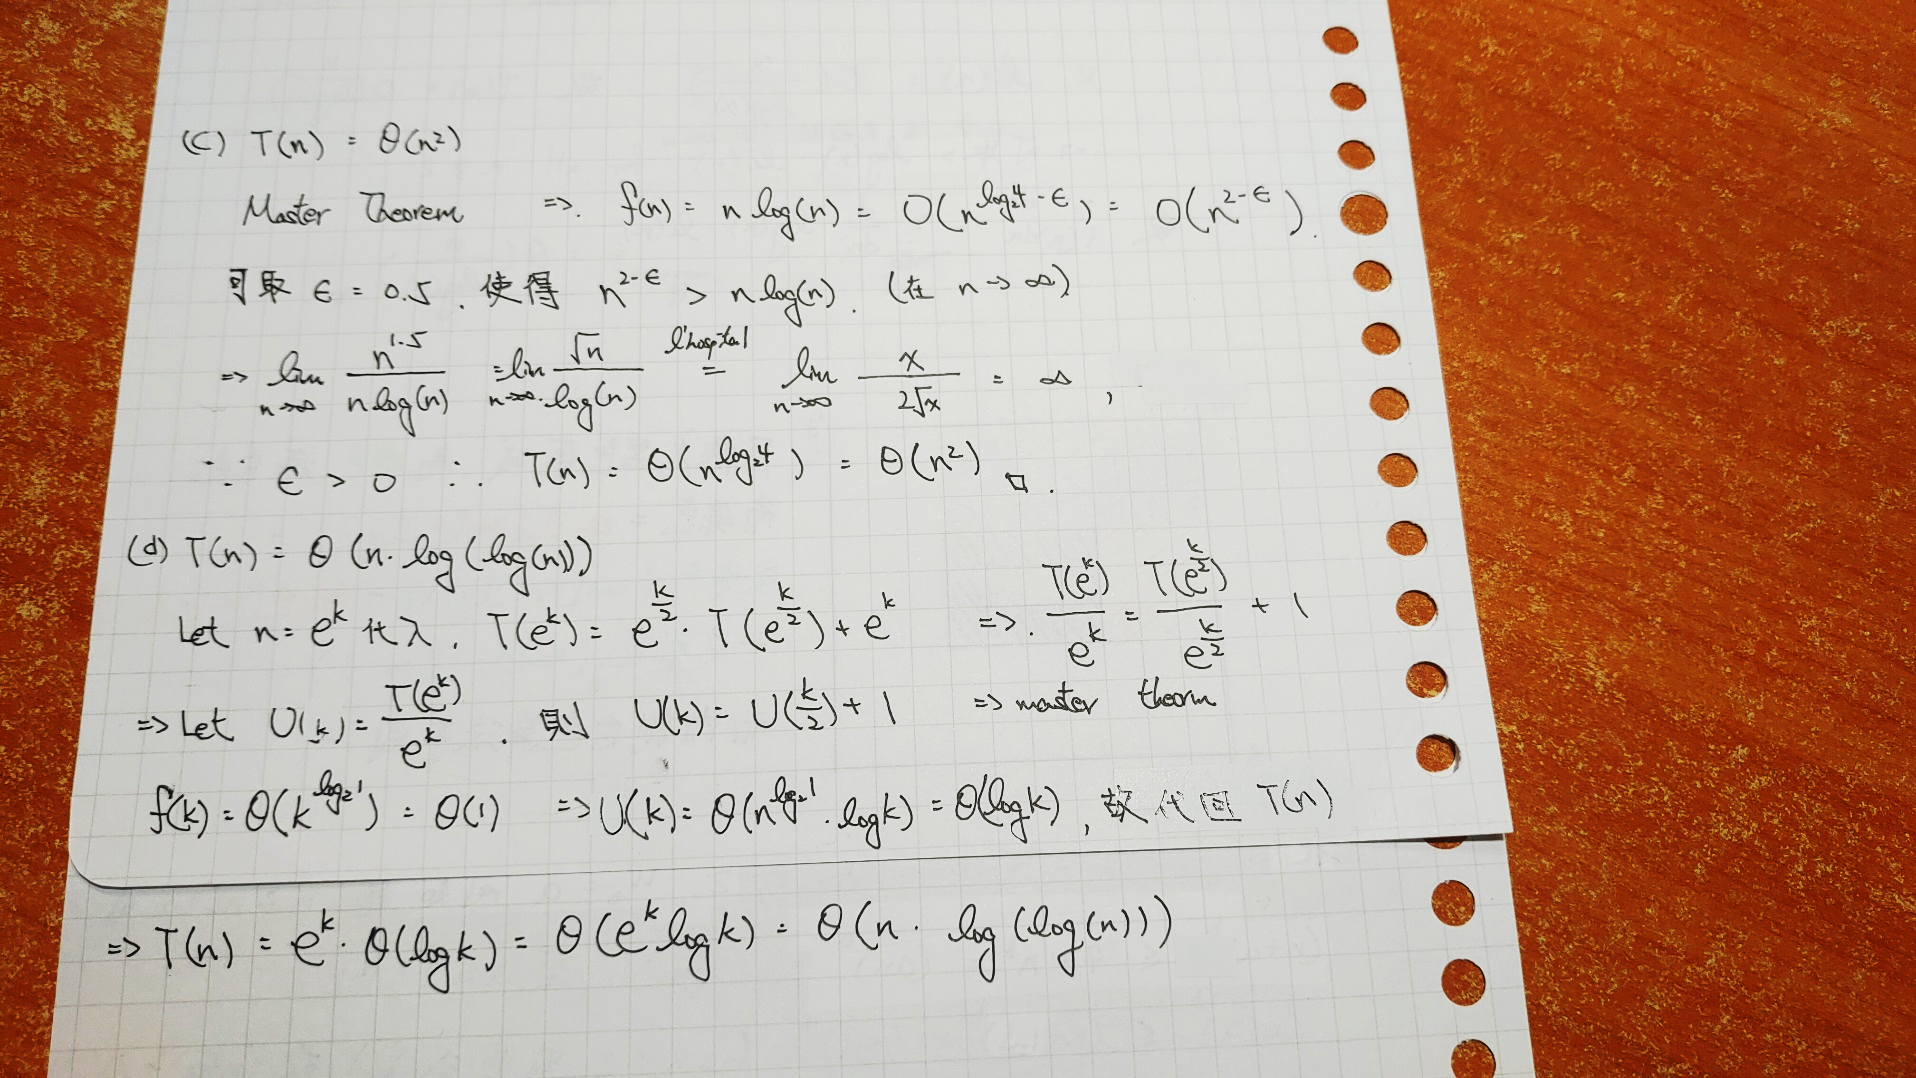 (c) T(n) = Θ(n²)
Master Theorem => f(n) = n log(n) = O(n^{log₂4-ε}) = O(n^{2-ε}).
可取 ε = 0.5 . 使得 n^{2-ε} > n log(n). (在 n→∞)
=> lim_{n→∞} n^{1.5}/(n log(n)) = lim_{n→∞} √n/log(n) l'hospital = lim_{n→∞} x/(2√x) = ∞ ,
∵ ε > 0 ∴ T(n) = Θ(n^{log₂4}) = Θ(n²) □.
(d) T(n) = Θ(n · log(log(n)))
Let n = e^k 代入 . T(e^k) = e^{k/2} · T(e^{k/2}) + e^k => . T(e^k)/e^k = T(e^{k/2})/e^{k/2} + 1
=> Let U(k) = T(e^k)/e^k . 則 U(k) = U(k/2) + 1 => master theorm
f(k) = Θ(k^{log₂1}) = Θ(1) => U(k) = Θ(n^{log₂1} · log k) = Θ(log k) , 故代回 T(n)
=> T(n) = e^k · Θ(log k) = Θ(e^k log k) = Θ(n · log (log(n)))